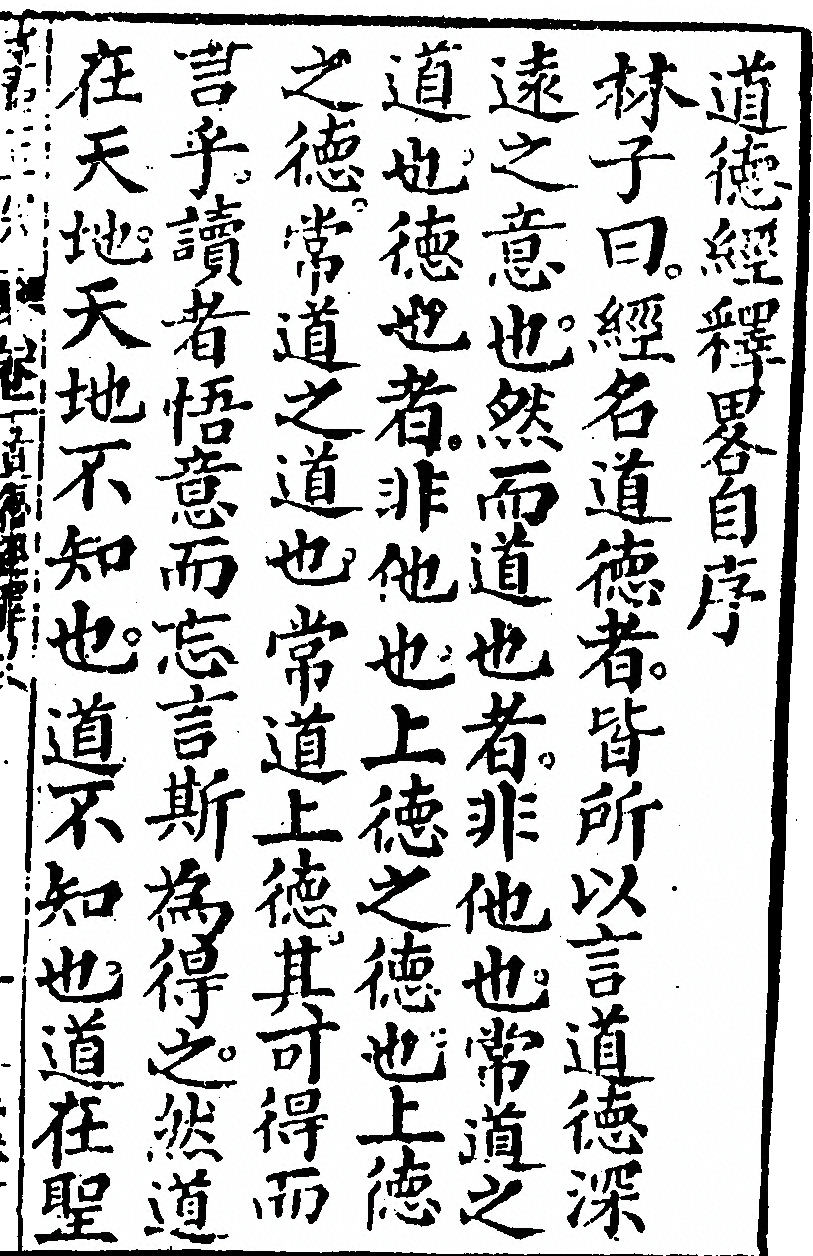 道德經釋畧自序
林子曰。經名道德者。皆所以言道德深
遠之意也。然而道也者。非他也。常道之
道也。德也者。非他也。上德之德也。上德
之德。常道之道也。常道上德。其可得而
言乎。讀者悟意而忘言斯為得之。然道
在天地。天地不知也。道不知也。道在聖